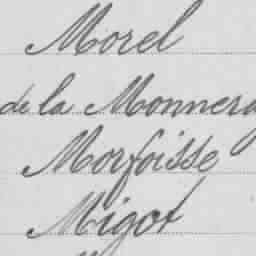 Morel
de la Monnera
Morfoisse
Migot